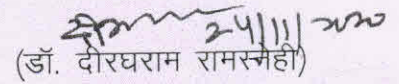 24/11/2020
(डॉ. दीरघराम रामस्नेही)